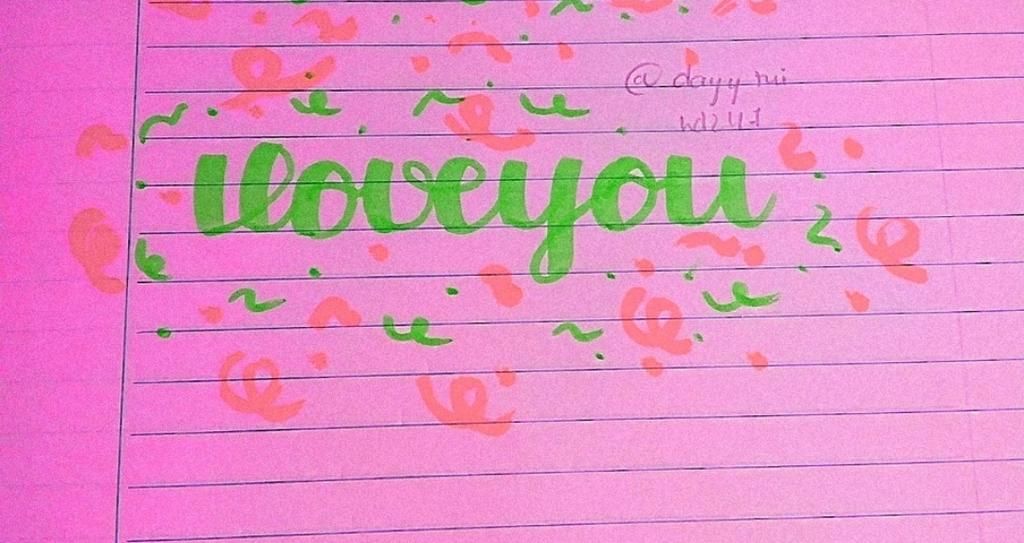 @dayy_mi
hd247
iloveyou